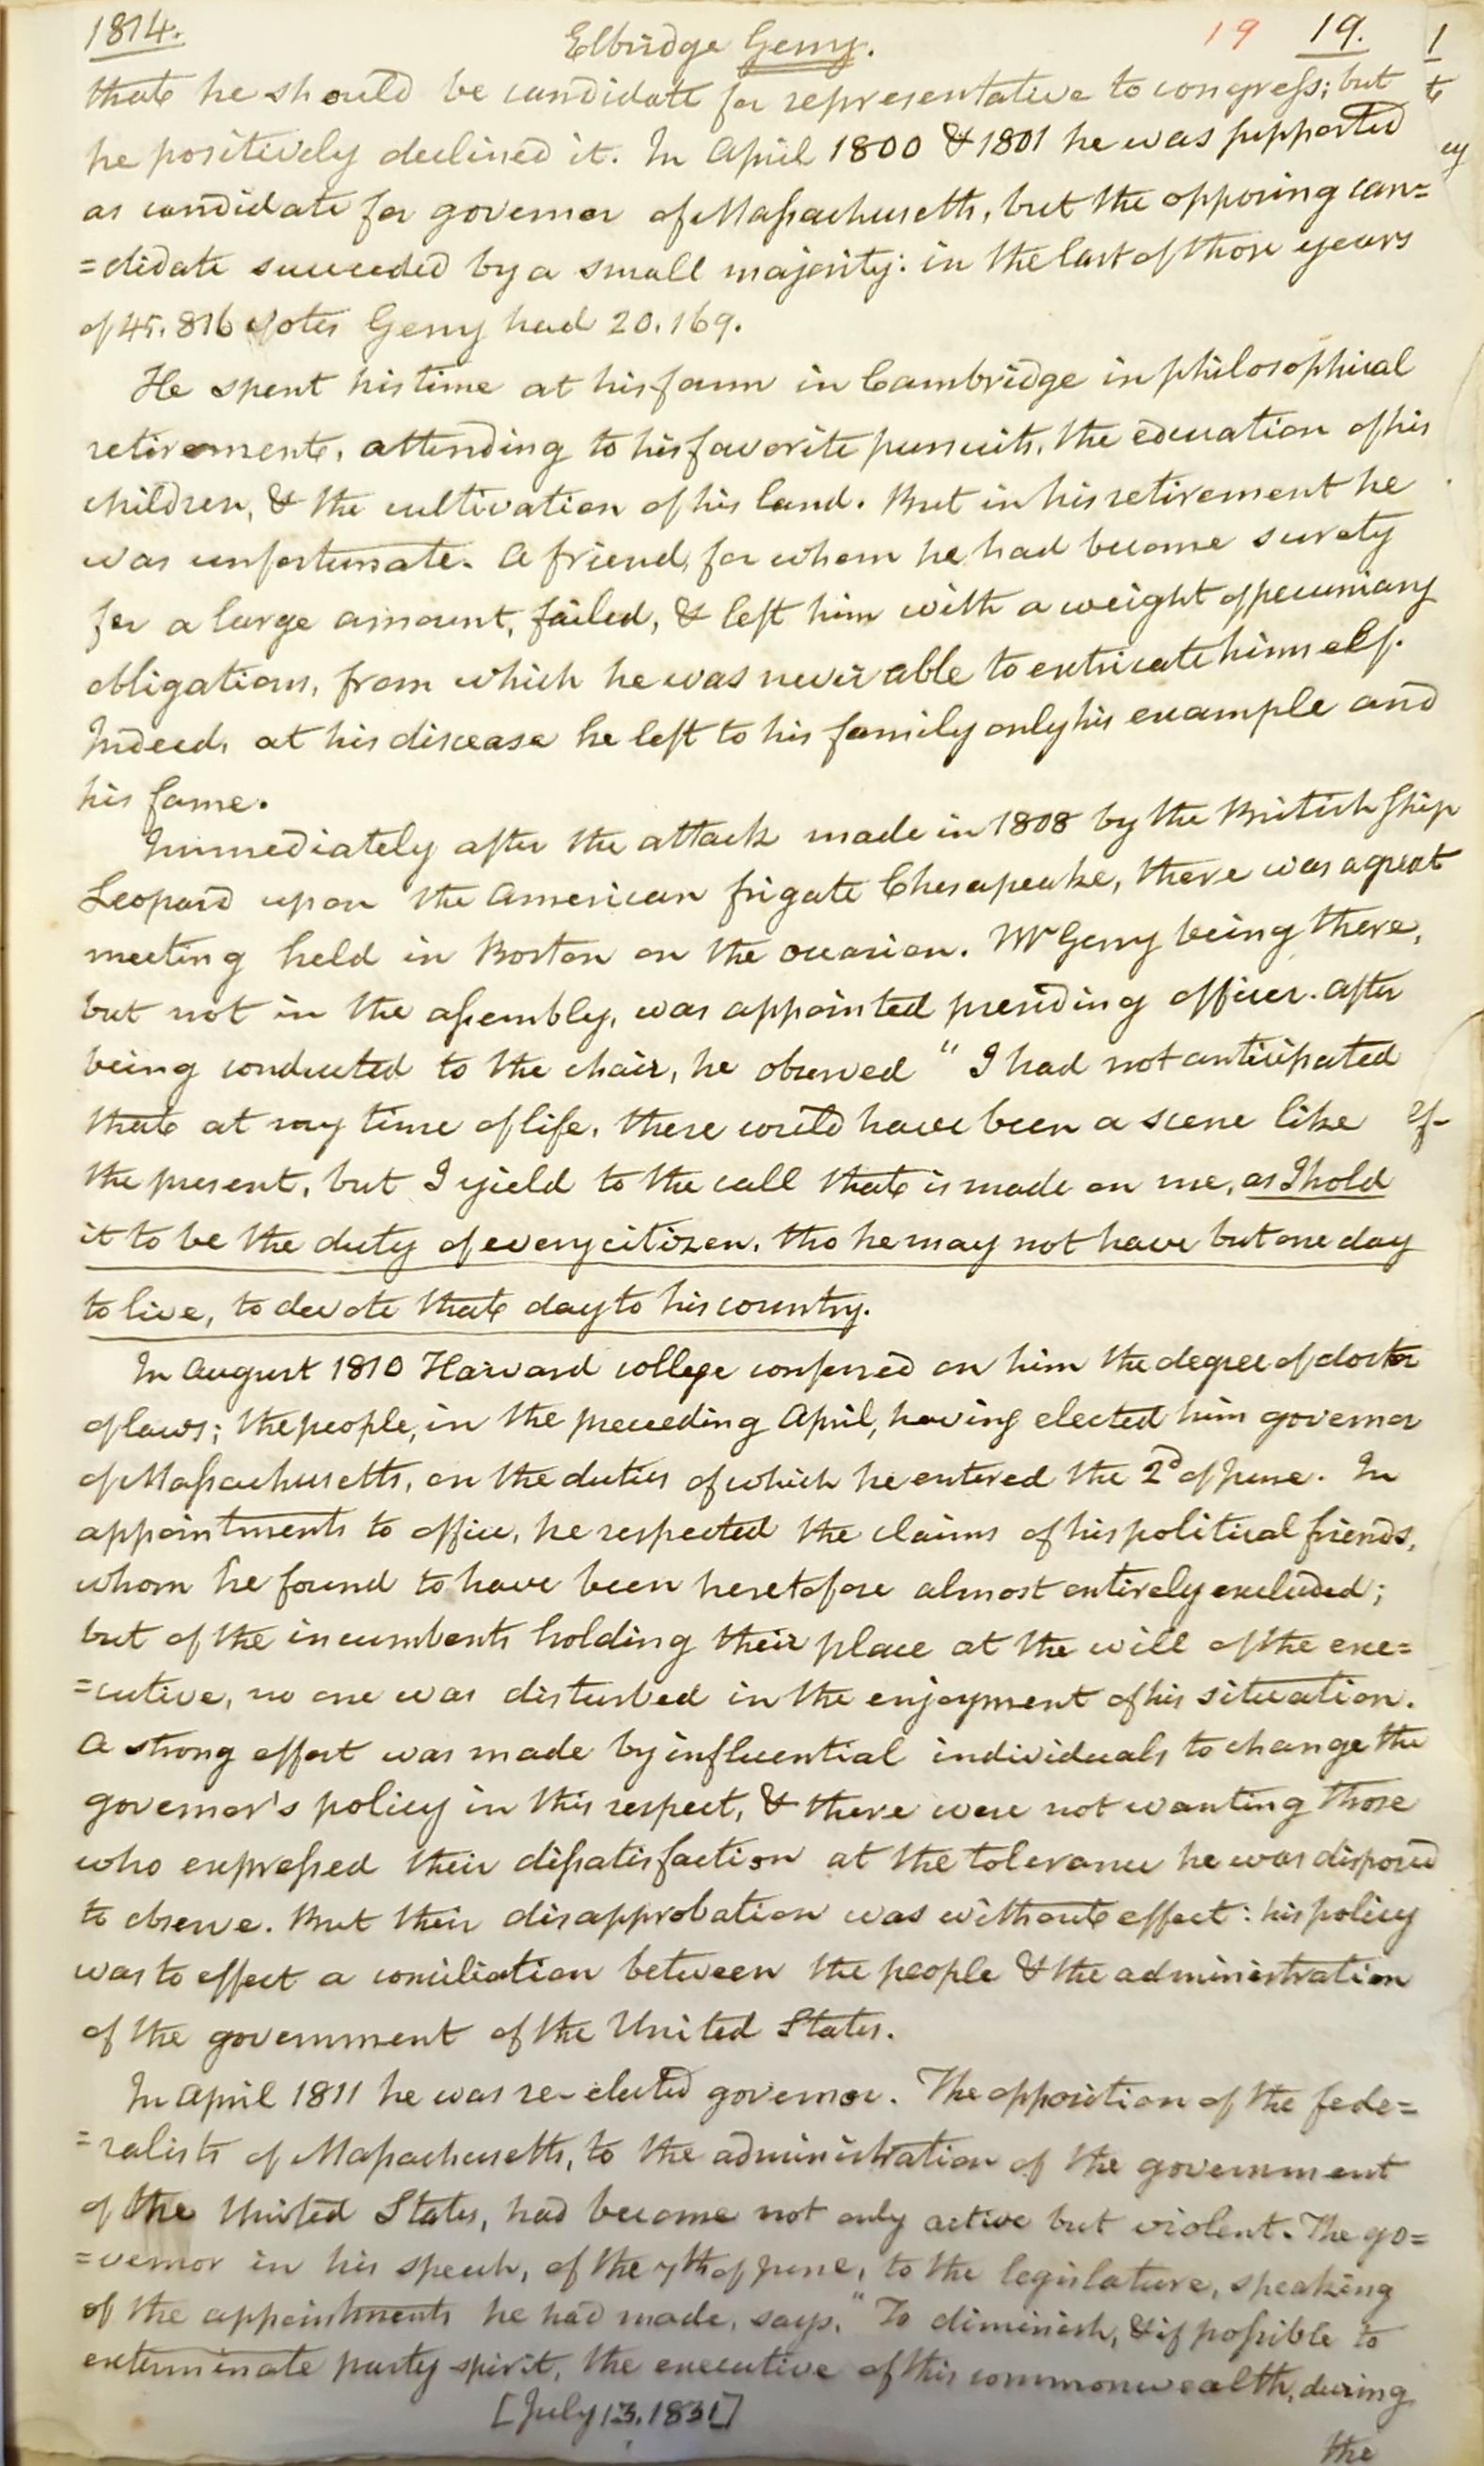 1814. Elbridge Gerry. 19 19. 1
that he should be candidate for representative to congreſs; but te
he positively declined it. In April 1800 & 1801 he was supported
as candidate for governor of Maſsachusetts, but the opposing can=
=didate succeeded by a small majority: in the last of those years
of 45.816 votes Gerry had 20.169.
He spent his time at his farm in Cambridge in philosophical
retirement, attending to his favorite pursuits, the education of his
children, & the cultivation of his land. But in his retirement he
was unfortunate. A friend, for whom he had become surety
for a large amount, failed, & left him with a weight of pecuniary
obligations, from which he was never able to extricate himself.
Indeed, at his disease he left to his family only his example and
his fame.
Immediately after the attack made in 1808 by the British ship
Leopard upon the American frigate Chesapeake, there was a great
meeting held in Boston on the occasion. Mr Gerry being there,
but not in the aſsembly, was appointed presiding officer. After
being conducted to the chair, he observed " I had not anticipated
that at my time of life, there could have been a scene like
the present, but I yield to the call that is made on me, as I hold
it to be the duty of every citizen, tho he may not have but one day
to live, to devote that day to his country.
In August 1810 Harvard college conferred on him the degree of doctor
of laws; the people, in the preceeding April, having elected him governor
of Maſsachusetts, on the duties of which he entered the 2d of June. In
appointments to office, he respected the claims of his political friends,
whom he found to have been heretofore almost entirely excluded;
but of the incumbents holding their place at the will of the exe=
=cutive, no one was disturbed in the enjoyment of his situation.
A strong effort was made by influential individuals to change the
governor's policy in this respect, & there were not wanting those
who expreſsed their diſsatisfaction at the tolerance he was disposed
to observe. But their disapprobation was without effect: his policy
was to effect a conciliation between the people & the administration
of the government of the United States.
In April 1811 he was re-elected governor. The opposition of the fede=
=ralists of Maſsachusetts, to the administration of the government
of the United States, had become not only active but violent. The go=
=vernor in his speech, of the 7th of June, to the legislature, speaking
of the appointments he had made, says, " To diminish, & if poſsible to
exterminate party spirit, the executive of this commonwealth, during
[July 13. 1831]
the